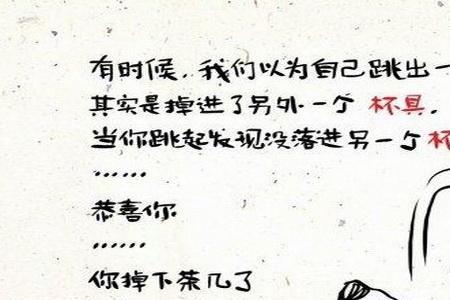 有时候，我们以为自己跳出一
其实是掉进了另外一个 杯具，
当你跳起发现没落进另一个杯
……
恭喜你
……
你掉下茶几了